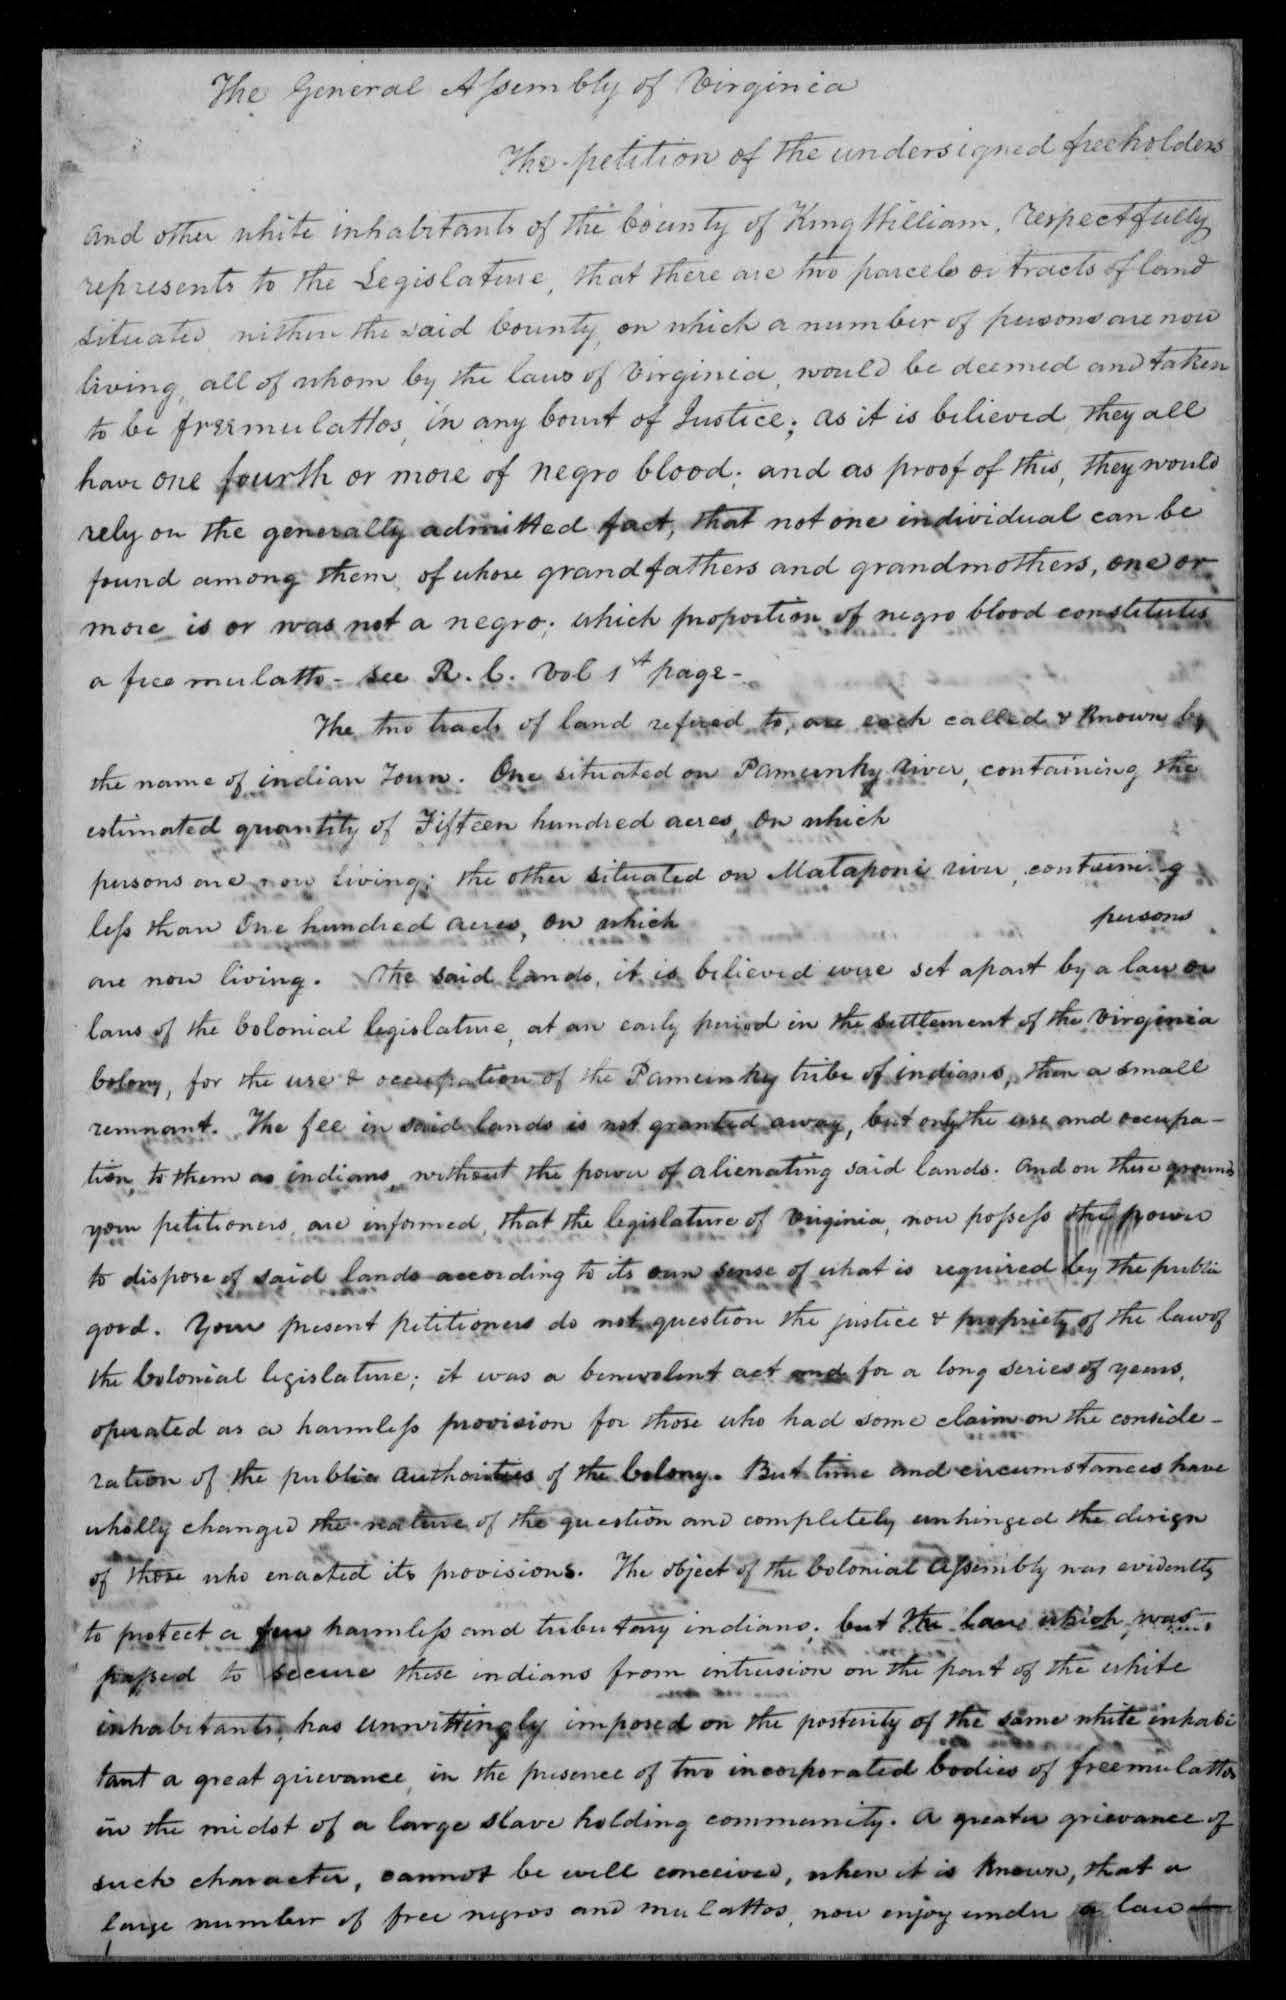 The General Assembly of Virginia
The petition of the undersigned freeholders
and other white inhabitants of the County of King William, respectfully
represents to the Legislature, that there are two parcels or tracts of land
situated within the said County, on which a number of persons are now
living, all of whom by the laws of Virginia, would be deemed and taken
to be free mulattos, in any Court of Justice; as it is believed they all
have one fourth or more of negro blood; and as proof of this, they would
rely on the generally admitted fact, that not one individual can be
found among them, of whose grandfathers and grandmothers, one or
more is or was not a negro; which proportion of negro blood constitutes
a free mulatto - see R. C. Vol 1st page -
The two tracts of land refered to, are each called & known by
the name of indian Town. One situated on Pamunky river, containing the
estimated quantity of Fifteen hundred acres, on which
persons are now living; the other situated on Mataponi river, containing
less than One hundred acres, on which persons
are now living. The said lands, it is believed were set apart by a law or
laws of the Colonial legislature, at an early period in the settlement of the Virginia
Colony, for the use & occupation of the Pamunky tribe of indians, then a small
remnant. The fee in said lands is not granted away, but only the use and occupa-
tion, to them as indians, without the power of alienating said lands. And on these grounds
your petitioners, are informed, that the legislature of Virginia, now possess the power
to dispose of said lands according to its own sense of what is required by the public
good. Your present petitioners do not question the justice & propriety of the law of
the Colonial legislature; it was a benevolent act and for a long series of years,
operated as a harmless provision for those who had some claim on the conside-
ration of the public authorities of the Colony. But time and circumstances have
wholly changed the nature of the question and completely unhinged the design
of those who enacted its provisions. The object of the Colonial Assembly was evidently
to protect a few harmless and tributary indians; but the law which was
passed to secure these indians from intrusion on the part of the white
inhabitants, has unwittingly imposed on the posterity of the same white inhabi
tant a great grievance, in the presence of two incorporated bodies of free mulattos
in the midst of a large slave holding community. A greater grievance of
such character, cannot be well conceived, when it is known, that a
large number of free negros and mulattos, now enjoy under a law